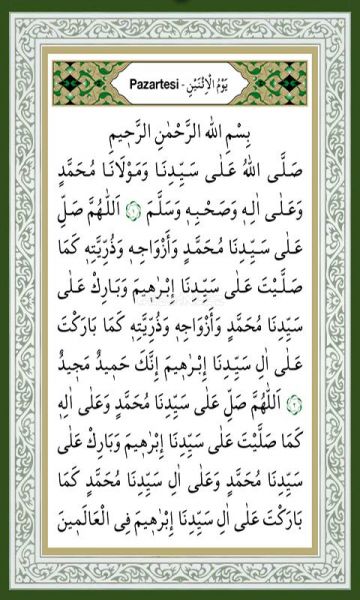 Pazartesi - يَوْمُ الْاِثْنَيْنِ
بِسْمِ اللهِ الرَّحْمٰنِ الرَّحِيمِ
صَلَّى اللهُ عَلٰى سَيِّدِنَا وَمَوْلَانَا مُحَمَّدٍ
وَعَلٰى اٰلِهٖ وَصَحْبِهٖ وَسَلَّمَ ۞ اَللّٰهُمَّ صَلِّ
عَلٰى سَيِّدِنَا مُحَمَّدٍ وَأَزْوَاجِهٖ وَذُرِّيَّتِهٖ كَمَا
صَلَّيْتَ عَلٰى سَيِّدِنَا إِبْرٰهِيمَ وَبَارِكْ عَلٰى
سَيِّدِنَا مُحَمَّدٍ وَأَزْوَاجِهٖ وَذُرِّيَّتِهٖ كَمَا بَارَكْتَ
عَلٰى اٰلِ سَيِّدِنَا إِبْرٰهِيمَ إِنَّكَ حَمِيدٌ مَجِيدٌ
۞ اَللّٰهُمَّ صَلِّ عَلٰى سَيِّدِنَا مُحَمَّدٍ وَعَلٰى اٰلِهٖ
كَمَا صَلَّيْتَ عَلٰى سَيِّدِنَا إِبْرٰهِيمَ وَبَارِكْ عَلٰى
سَيِّدِنَا مُحَمَّدٍ وَعَلٰى اٰلِ سَيِّدِنَا مُحَمَّدٍ كَمَا
بَارَكْتَ عَلٰى اٰلِ سَيِّدِنَا إِبْرٰهِيمَ فِى الْعَالَمِينَ